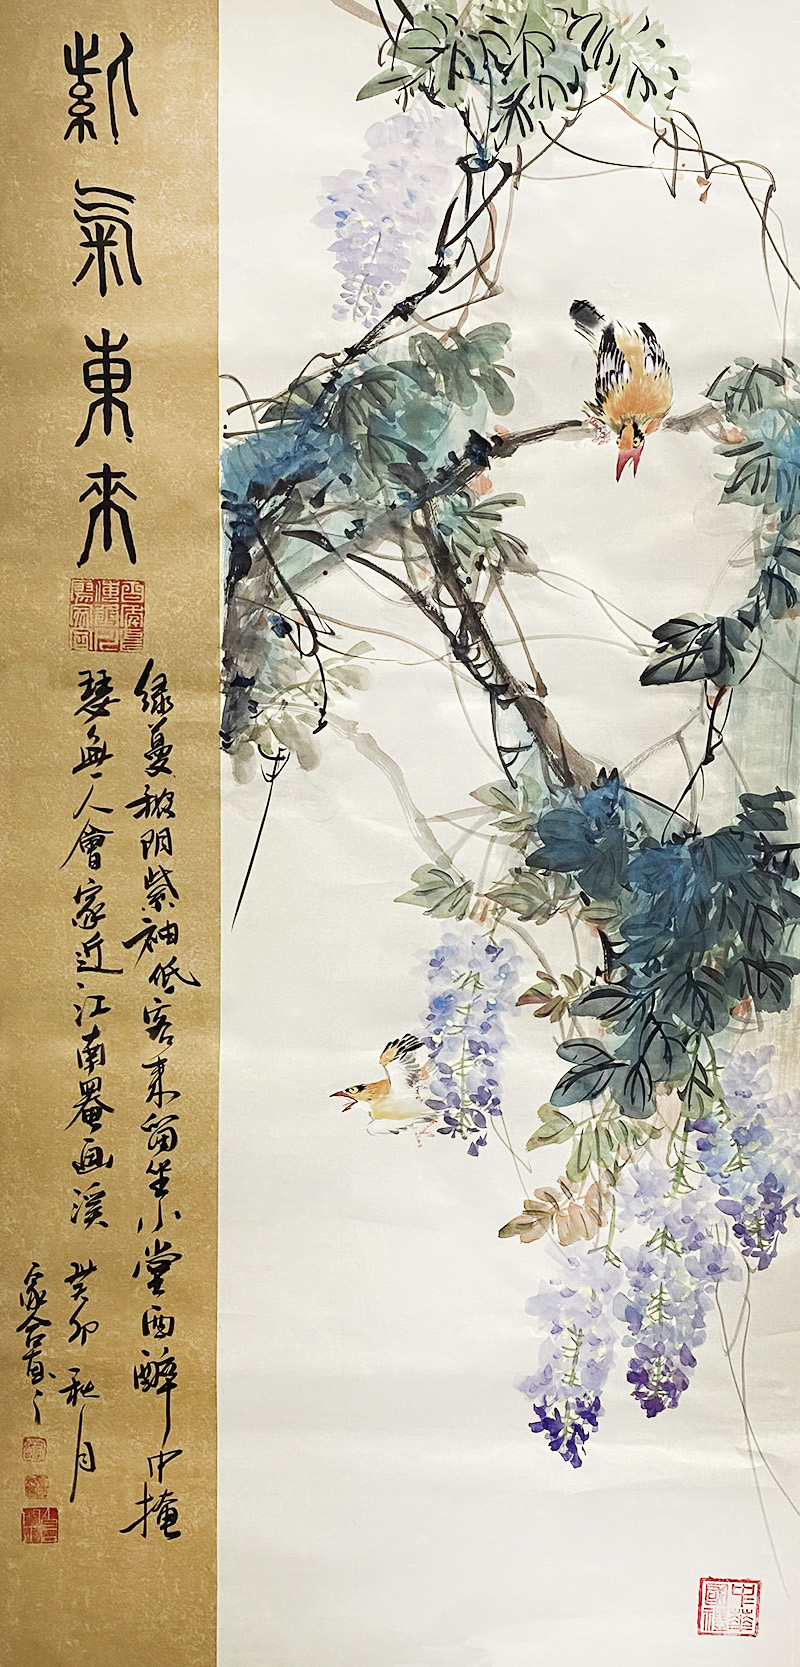 紫氣東來
绿蔓秾阴紫袖低客来留坐小堂西醉中掩
瑟無人會家近江南罨画溪 癸卯秋月
中華國禮